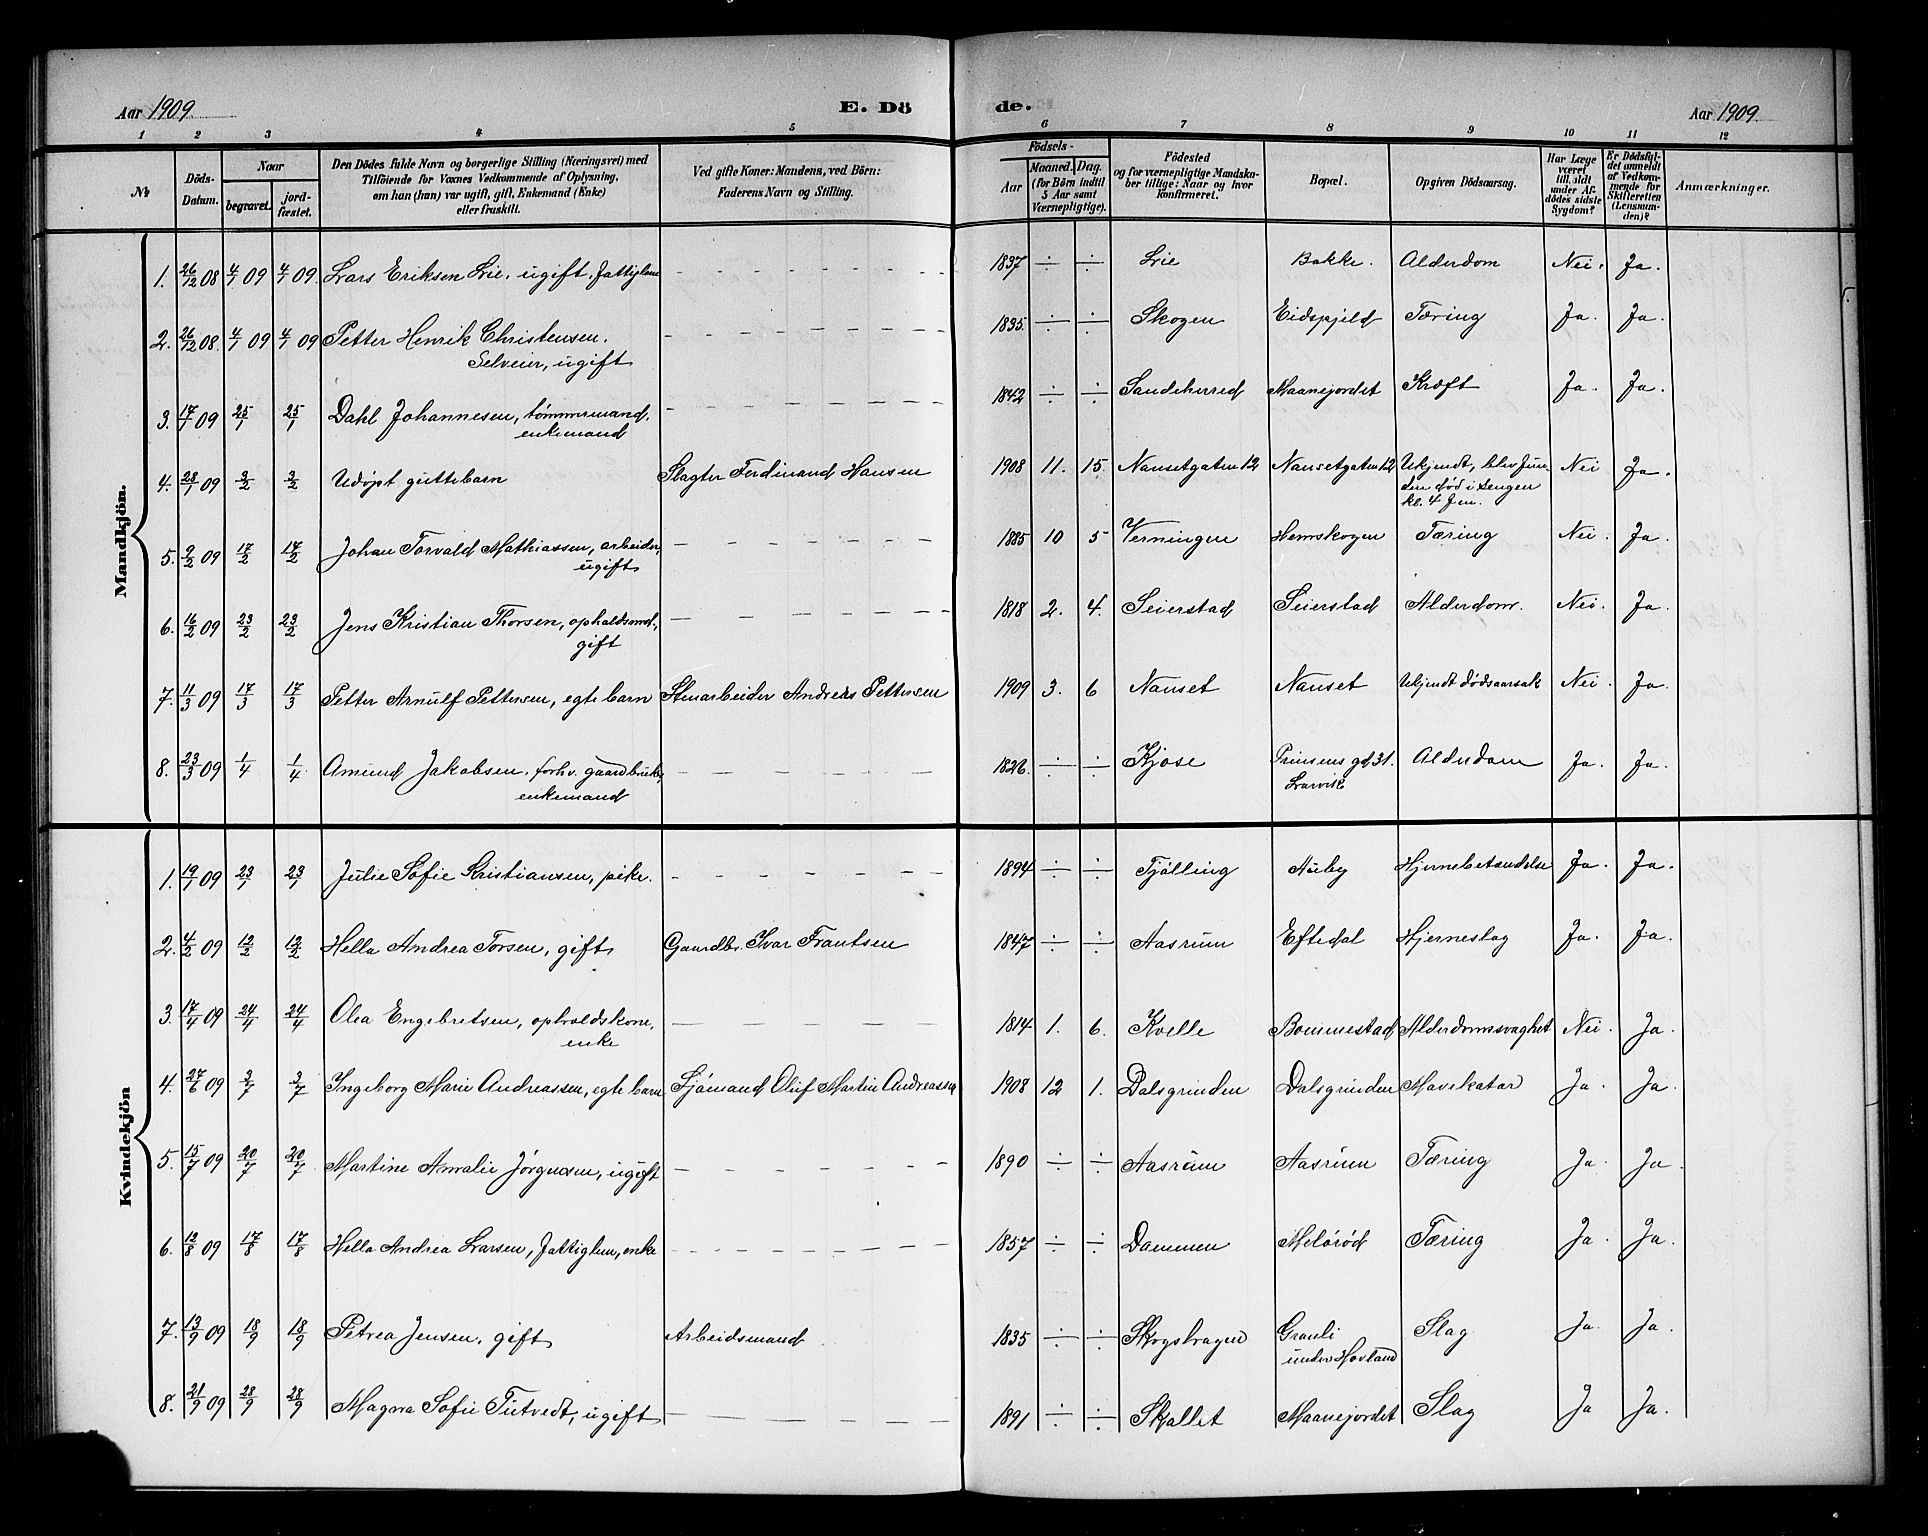 Aar 1909. E. Dö de. Aar 1909.
1 2 3 4 5 6 7 8 9 10 11 12
№ Döds-Datum. Naar begravet. jordfæstet. Den Dödes fulde Navn og borgerlige Stilling (Næringsvei) med Tilföiende for Voxnes Vedkommende af Oplysning, om han (hun) var ugift, gift, Enkemand (Enke) eller fraskilt. Ved gifte Koner: Mandens, ved Börn: Faderens Navn og Stilling. Födsels- Aar Maaned. Dag. (for Börn indtil 5 Aar samt Værnepligtige). Födested og for værnepligtige Mandskaber tillige: Naar og hvor konfirmeret. Bopæl. Opgiven Dödsaarsag. Har Læge været tilkaldt under Afdödes sidste Sygdom? Er Dödsfaldet anmeldt af Vedkommende for Skifteretten (Lensmanden)? Anmærkninger.
Mandkjön.
1. 26/12 08 4/1 09 4/1 09. Lars Eriksen Lie, ugift, fattiglem 1837 ÷ ÷ Lie Bakke. Alderdom Nei. Ja.
2. 26/12 08. 4/1 09 4/1 09 Petter Henrik Christensen, 1835. ÷ ÷ Skogen Eidsfjeld Tæring Ja. Ja.
Selveier, ugift
3. 17/1 09 25/1 25/1 Dahl Johannesen, tømmermand, 1842 ÷ ÷ Sandeherred Maanejordet Kræft Ja. Ja.
enkemand
4. 28/1 09 3/2 3/2 Udöpt guttebarn Slagter Ferdinand Hansen 1908 11. 15. Nansetgaten 12 Nansetgaten 12 Ukjendt, blev funden död i sengen kl. 4 fm. Nei Ja.
5. 9/2 09 17/2 17/2 Johan Torvald Mathiassen, arbeider, 1885 10 5 Verningen Hemskogen Tæring Nei. Ja.
ugift
6. 16/2 09 23/2 23/2 Jens Kristian Thorsen, opholdsmd., 1818 2. 4. Seierstad Seierstad Alderdom. Nei. Ja.
gift
7. 11/3 09 17/3 17/3 Petter Arnulf Pettersen, egte barn Stenarbeider Andreas Pettersen 1909 3. 6 Nanset Nanset Ukjendt dödsaarsak Nei. Ja.
8. 23/3 09 1/4 1/4 Amund Jakobsen, forhv. gaardbruker, 1826. ÷ ÷ Kjose Prinsens gd. 31. Larvik Alderdom Ja. Ja.
enkemand
Kvindekjön
1. 19/1 09 23/1 23/1 Julie Sofie Kristiansen, pike. 1894 ÷ ÷ Tjölling Auby Hjernebetændelse Ja. Ja.
2. 4/2 09 12/2 12/2 Hella Andrea Torsen, gift Gaardbr. Ivar Frantsen 1847 ÷ ÷ Aasrum Eftedal Hjerneslag Ja. Ja.
3. 17/4 09 24/4 24/4 Olea Engebretsen, opholdskone, 1814 1. 6. Kvelle Bommestad Alderdomssvaghet Nei. Ja.
enke
4. 27/6 09 3/7 3/7 Ingeborg Marie Andreassen, egte barn Sjömand Oluf Martin Andreassen 1908 12 1. Dalsgrinden Dalsgrinden Mavekatar Ja. Ja.
5. 15/7 09 20/7 20/7 Martine Amalie Jörgensen, ugift 1890 ÷ ÷ Aasrum Aasrum Tæring Ja. Ja.
6. 12/8 09 17/8 17/8 Hella Andrea Larsen, fattiglem, enke 1857 ÷ ÷ Dammen Melöröd Tæring Ja. Ja.
7. 13/9 09 18/9 18/9 Petrea Jensen, gift Arbeidsmand 1835 ÷ ÷ Skogshagen Granli under Hovland Slag Ja. Ja.
8. 21/9 09 28/9 28/9 Magna Sofie Tutvedt, ugift 1891 ÷ ÷ Skallet Maanejordet Slag Ja Ja.